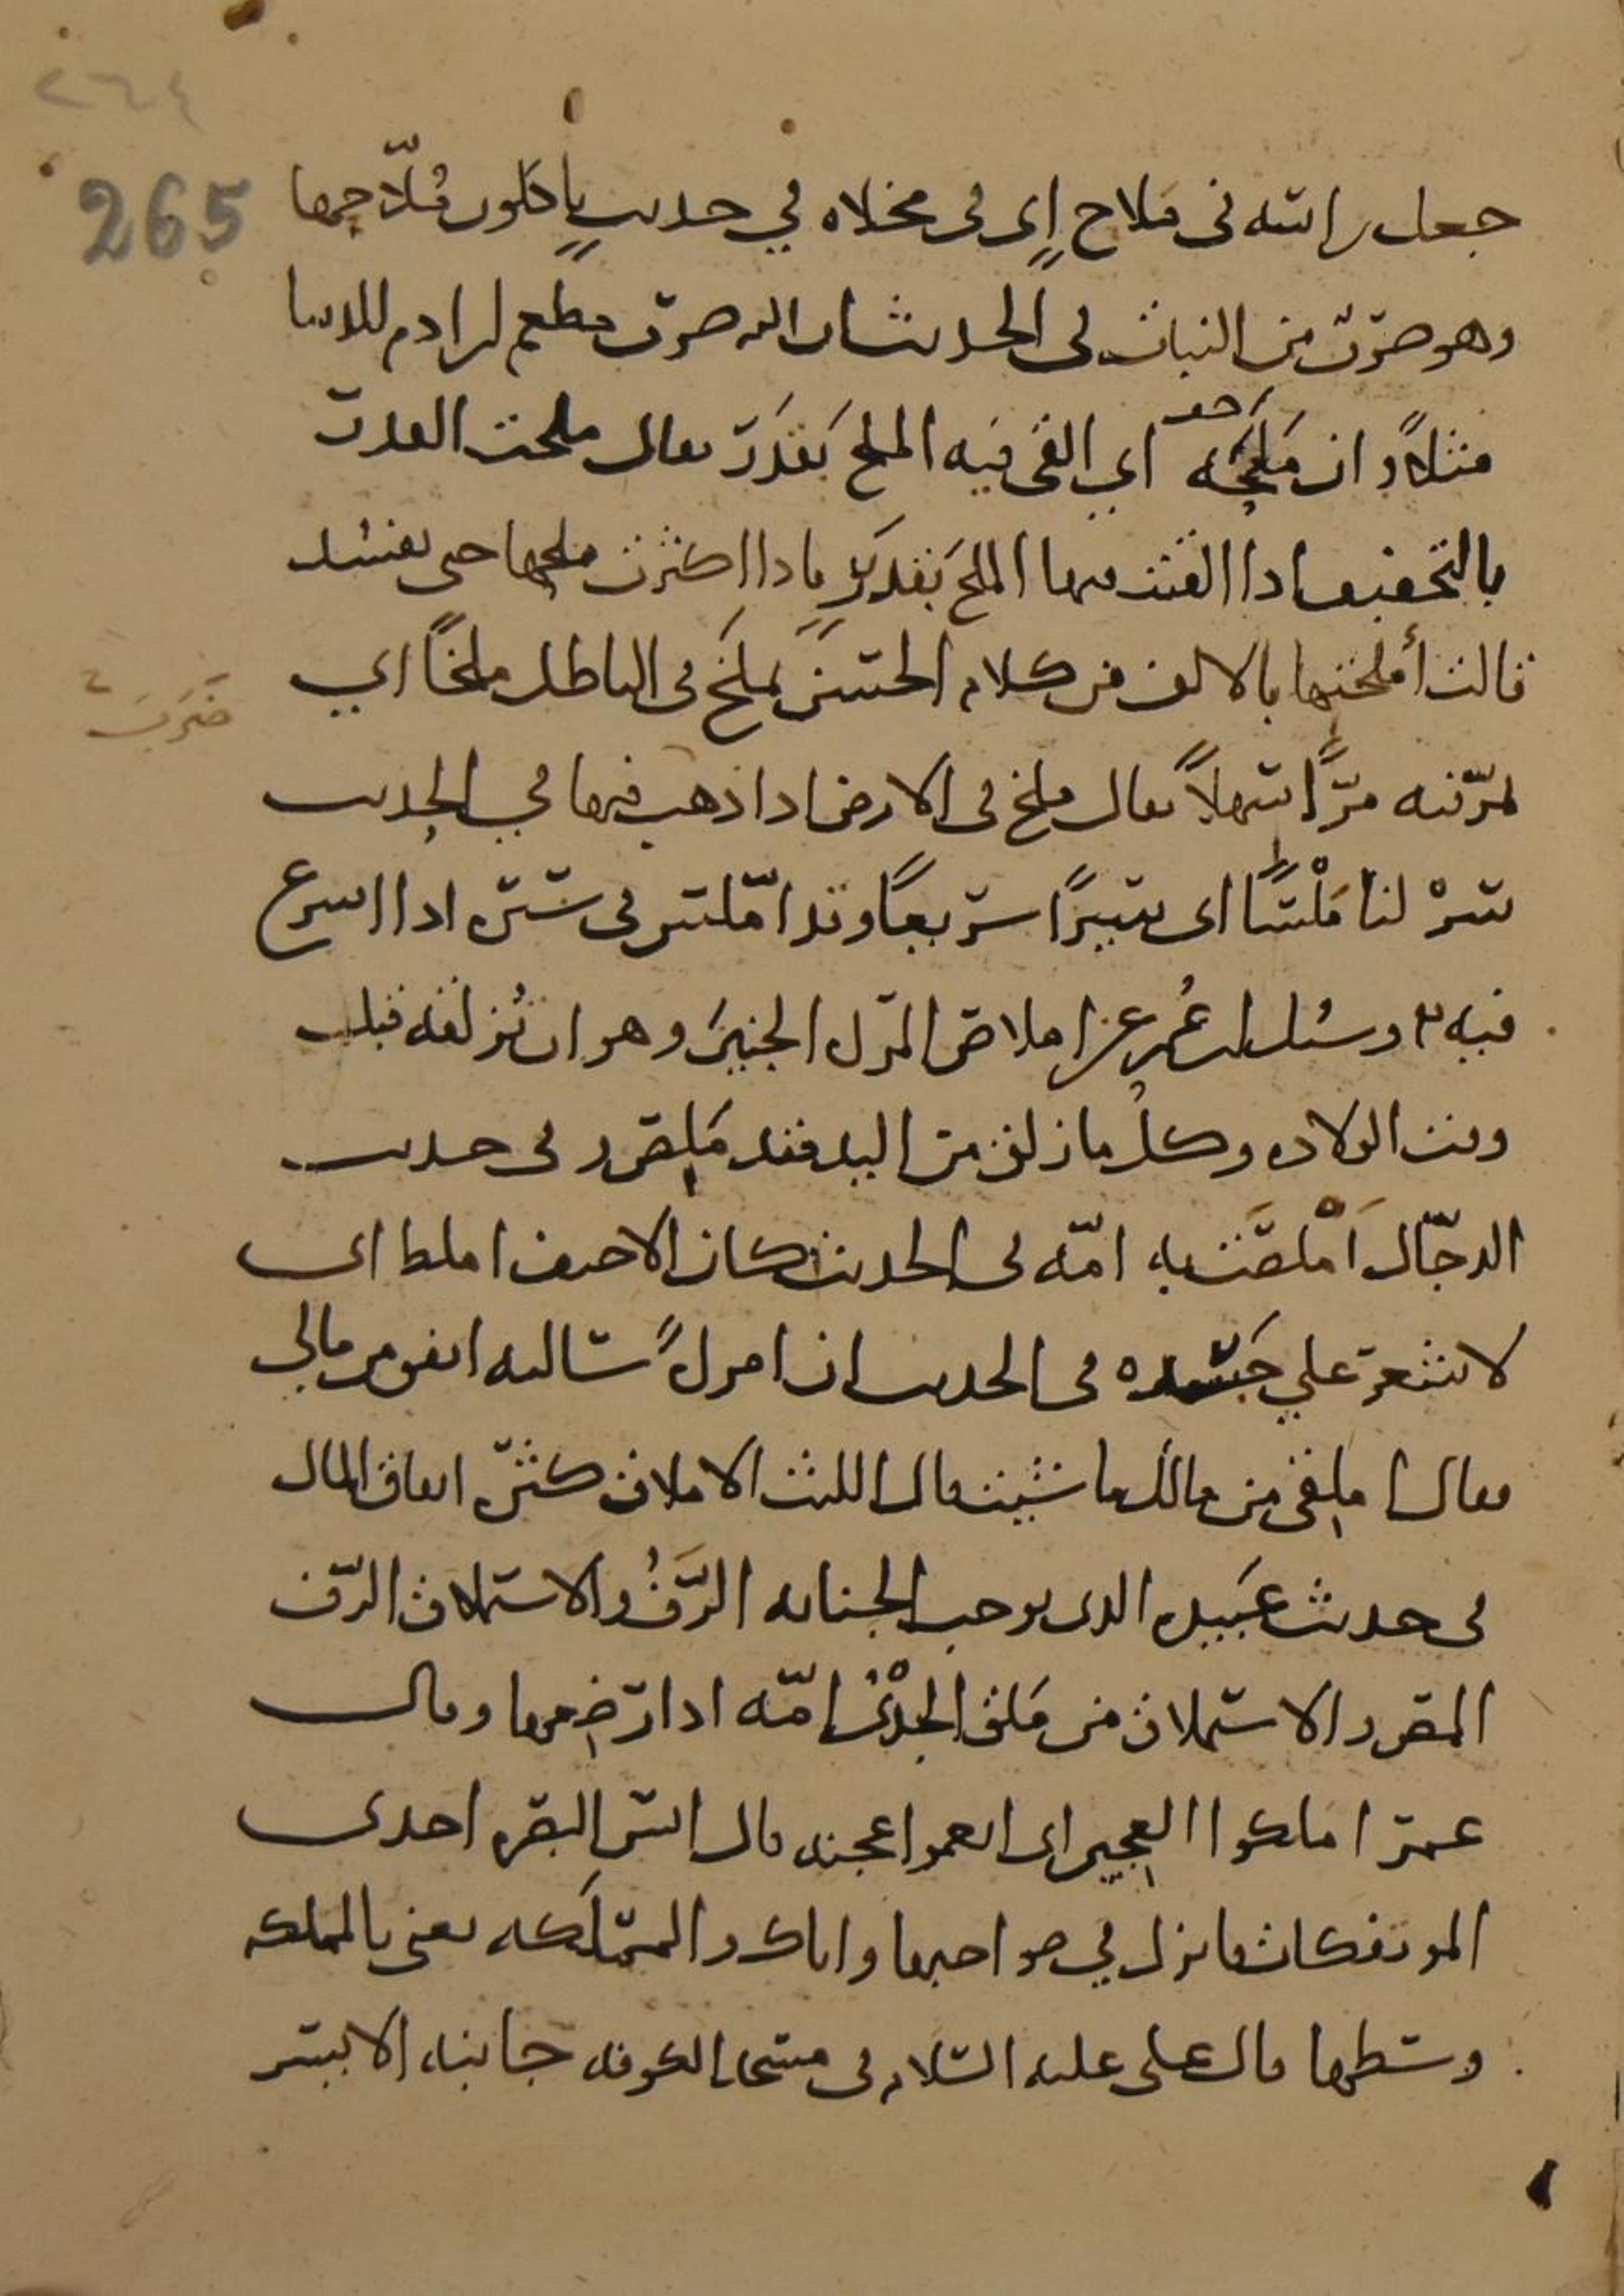 ٢٦٤
265
جعل راسه فى ملاح اى فى مخلاه في حديث ياكلون مُلّاحها
وهو ضرب من النبات فى الحديث ان الله ضرب مطعم ابن ادم للدنيا
مثلاً وان مَلَحَه اي القى فيه الملح بقدر يقال ملحت القدر
بالتخفيف اذا القيت فيها الملح بقدر فاذا اكثرت ملحها حتى تفسد
قالت أملحتها بالالف من كلام الحسن يملخ فى الباطل ملخًا اي
ضرب
يمرّ فيه مرًّا سهلاً يقال ملخ فى الارض اذا ذهب فيها في الحديث
سرْ لنا مَلْسًا اى سيرًا سريعًا وقد امّلس فى سيره اذا اسرع
فيه وسئل عُمر عن املاص المراه الجنين وهو ان تُزلقه قبل
وقت الولاده وكل ما زلق من اليد فقد مَلِص فى حديث
الدجّال أمْلَصَت به امّه فى الحديث كان الاحنف املط اى
لا شعر على جسده فى الحديث ان امراةً سالته انفق من مالي
فقال املقى من مالك ما شيت قال الليث الاملاق كثره انفاق المال
فى حديث عَبيده الذى يوجب الجنابه الرَّفُّ والاستملاق الرّف
المص والاستملاق من مَلَق الجدْىُ امّه اذا رضعها وقال
عمر املكوا العجين اى انعموا عجنه قال انس البصره احدى
الموتفكات فانزل في ضواحيها واياك والمملكه يعنى بالمملكه
وسطها قال على عليه السّلام فى مسجد الكوفه جانبه الايسر